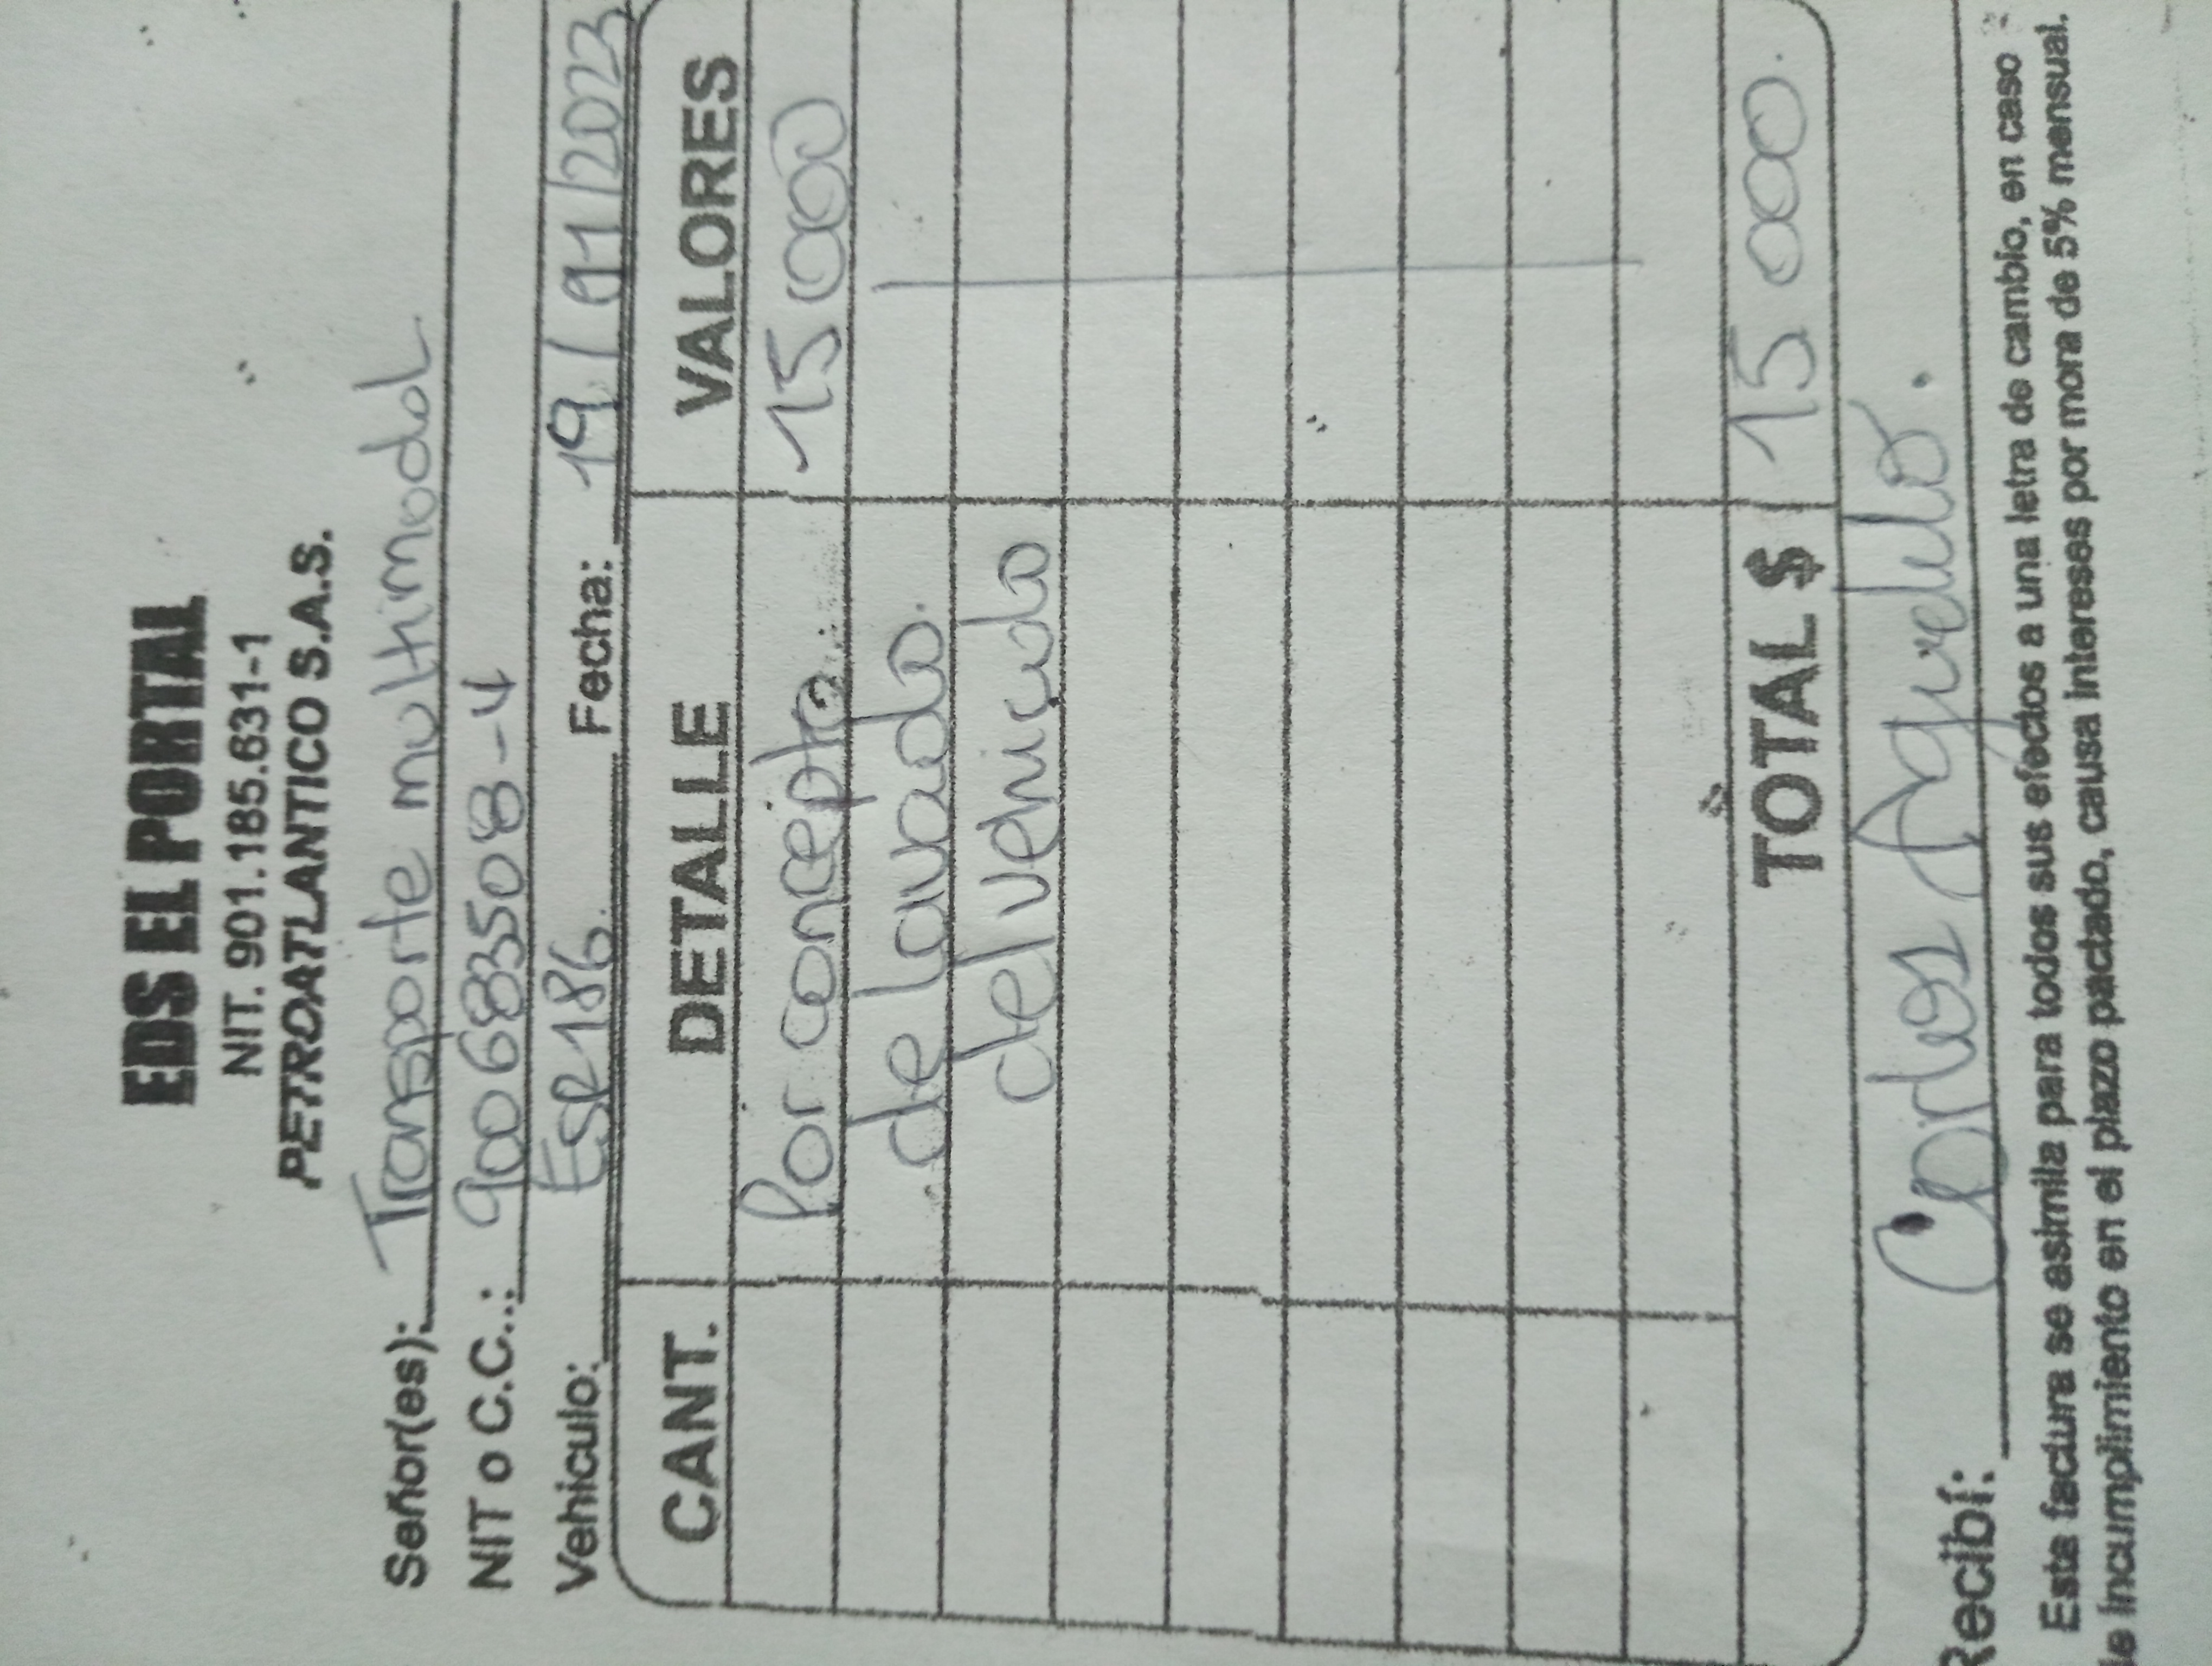 EDS EL PORTAL
NIT. 901.185.631-1
PETROATLANTICO S.A.S.
Señor(es): Transporte multimodal
NIT o C.C.: 900683508-4
Vehiculo: ESR186. Fecha: 19/01/2023
CANT. DETALLE VALORES
Por concepto 15000
de lavado.
del vehiculo
TOTAL $ 15 000.
Recibí: Carlos Agudelo.
Esta factura se asimila para todos sus efectos a una letra de cambio, en caso
de incumplimiento en el plazo pactado, causa intereses por mora de 5% mensual.